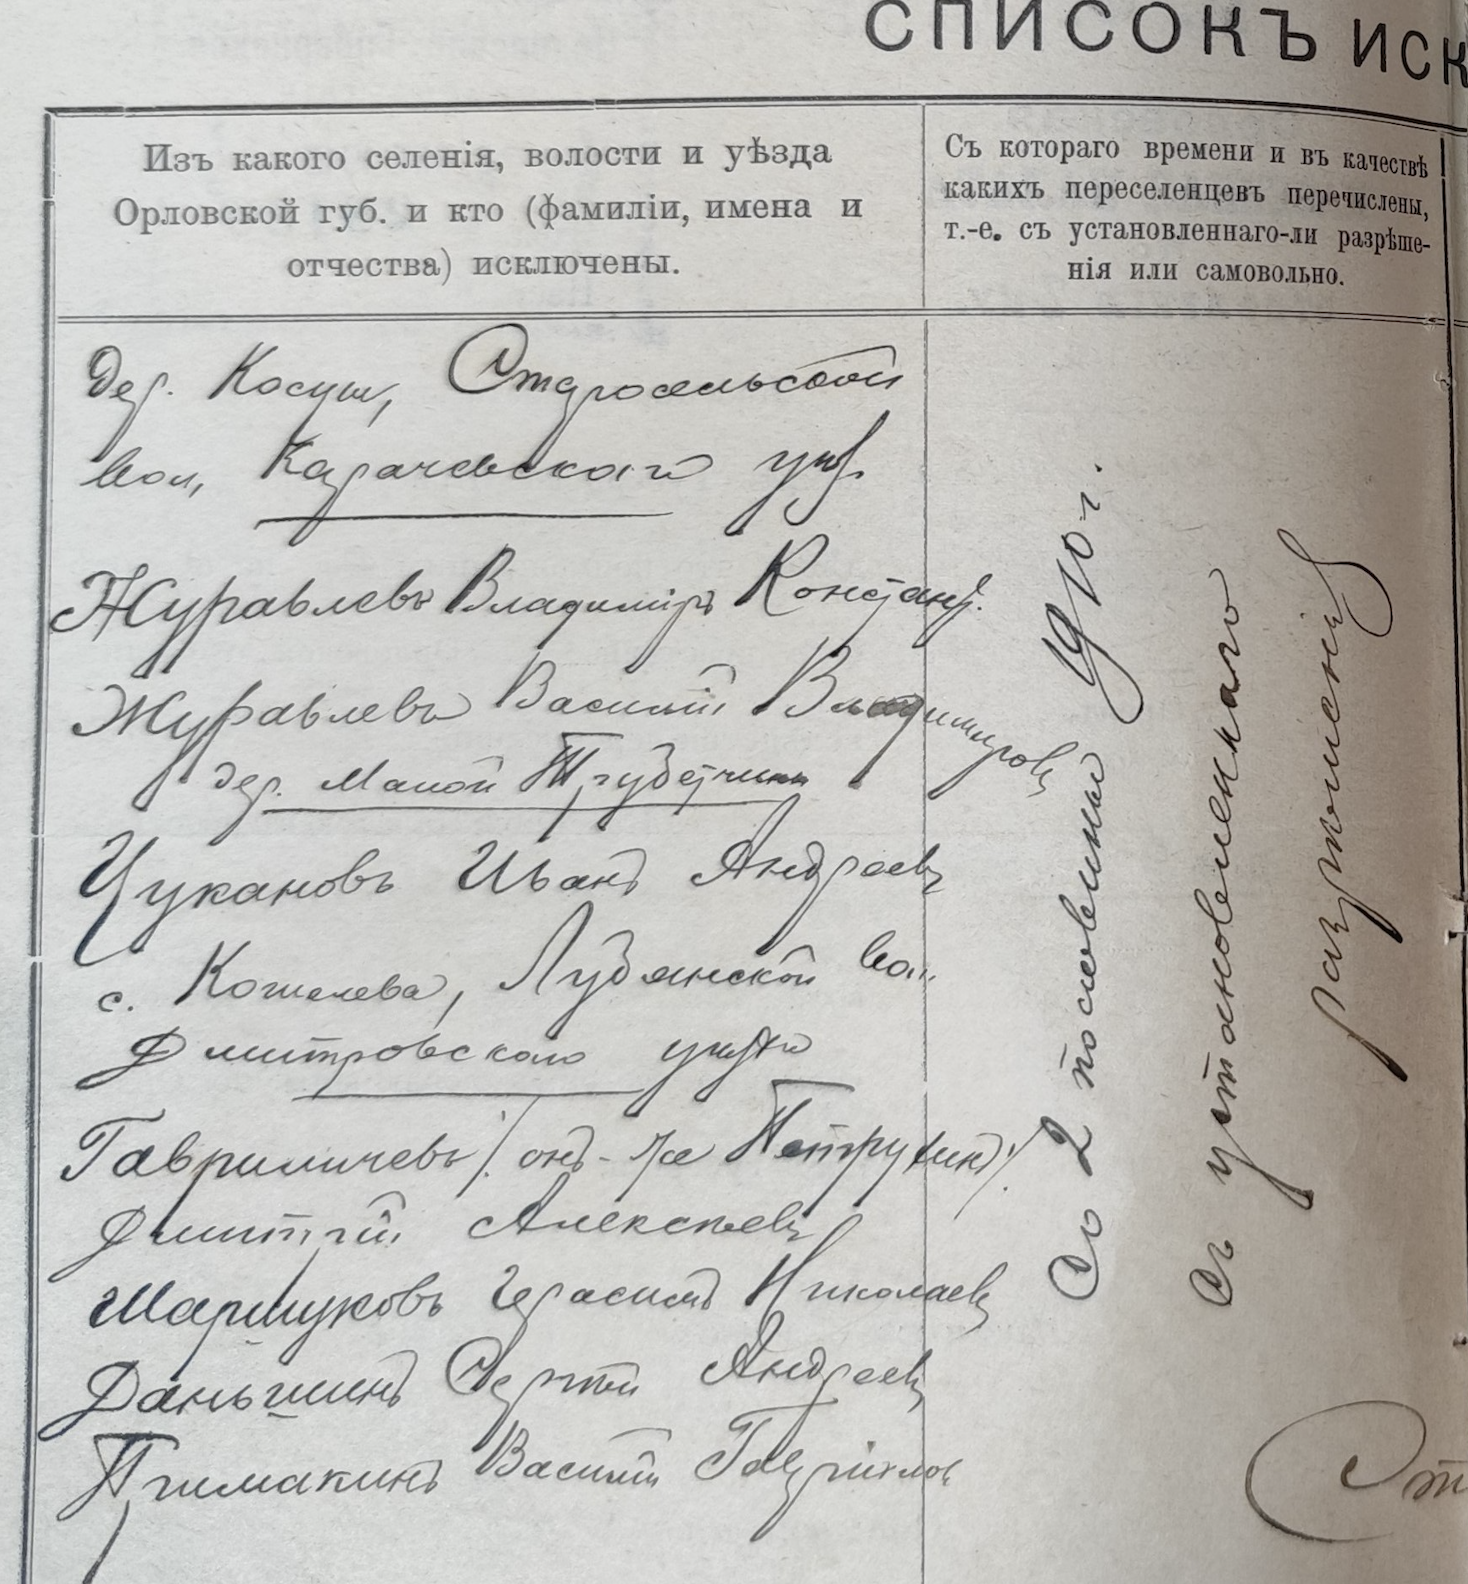 СПИСОКЪ ИСК
Изъ какого селенія, волости и уѣзда
Орловской губ. и кто (фамиліи, имена и
отчества) исключены.
Съ котораго времени и въ качествѣ
какихъ переселенцевъ перечислены,
т.-е. съ установленнаго-ли разрѣше-
нія или самовольно.
дер. Косуи, Старосельской
вол, Карачевскаго уѣз.
Журавлевъ Владиміръ Констант.
Журавлевъ Василій Владимировъ
дер. Малой Трубетчины
Цукановъ Иванъ Андреевъ
с. Кошелева, Лубянской вол.
Дмитровскаго уѣзда
Гавриличевъ /. онъ-же Петрухинъ /.
Дмитрій Алексѣевъ
Маршуковъ Герасимъ Николаевъ
Даньшинъ Сергѣй Андреевъ
Примакинъ Василій Гавриловъ
Со 2 половины 1910 г.
Съ установленнаго
разрѣшенія